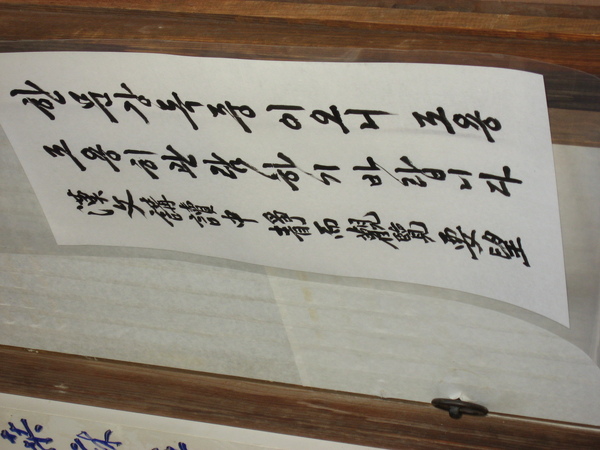 한문강독중이오니 조용
조용히관람하기바랍니다
漢文講讀中 靜而觀覽要望